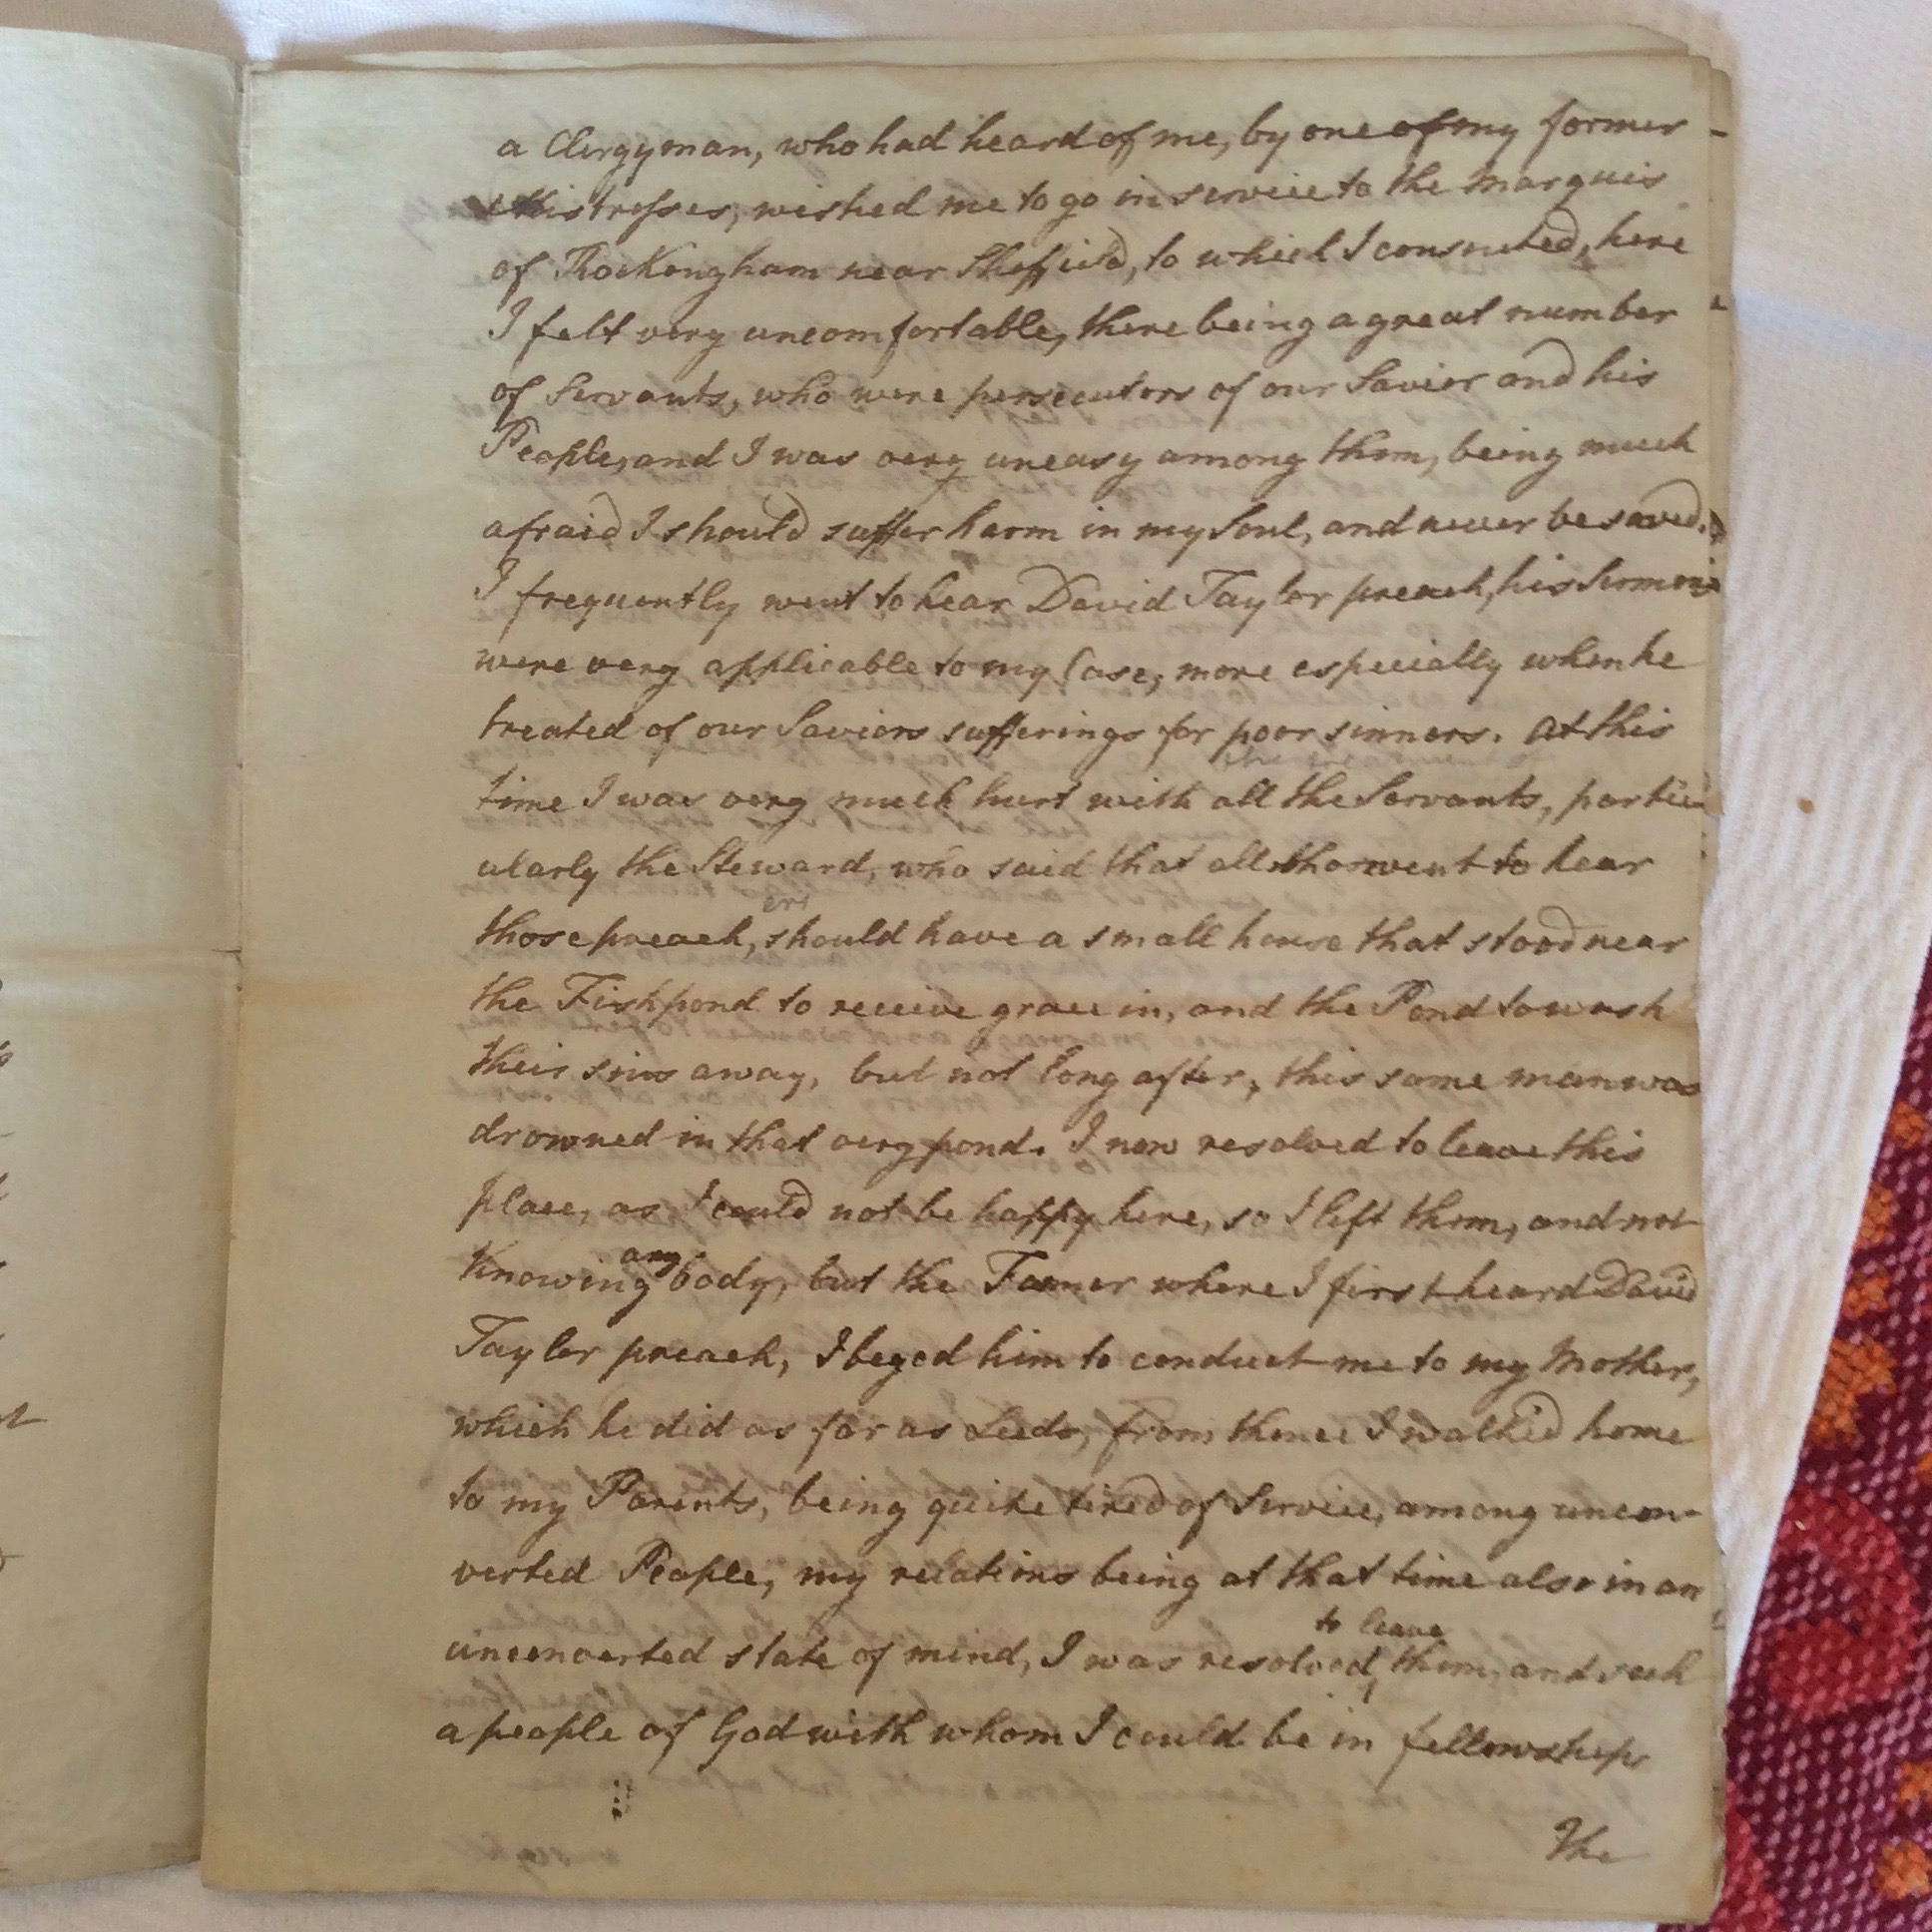 a Clergyman, who had heard of me, by one of my former
Mistresses, wished me to go in service to the Marquis
of Rockongham near Sheffield, to which I consented, here
I felt very uncomfortable, there being a great number
of Servants, who were persecutors of our Savior and his
People, and I was very uneasy among them, being much
afraid I should suffer harm in my Soul, and never be saved.
I frequently went to hear David Taylor preach, his Sermons
were very applicable to my Case, more especially when he
treated of our Saviors sufferings for poor sinners. At this
the treatment of
time I was very much hurt with all the Servants, partic
ularly the Steward, who said that all who went to hear
ers
those preach, should have a small house that stood near
the Fishpond to receive grace in, and the Pond to wash
their sins away, but not long after, this same man was
drowned in that very pond. I now resolved to leave this
place, as I could not be happy here, so I left them, and not
any
Knowing body, but the Farmer where I first heard David
Taylor preach, I beged him to conduct me to my Mother,
which he did as far as Leeds, from thence I walked home
to my Parents, being quite tired of Service, among uncon-
verted People, my relations being at that time also in an
to leave
unconverted state of mind, I was resolved, them, and seek
a people of God with whom I could be in fellowship
The